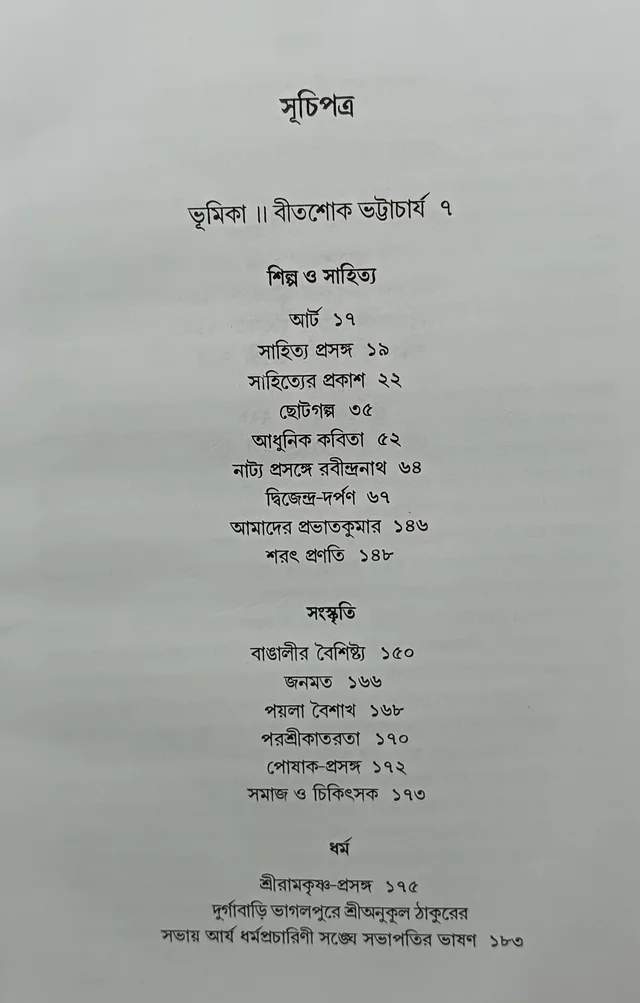 সূচিপত্র
ভূমিকা ৷৷ বীতশোক ভট্টাচার্য ৭
শিল্প ও সাহিত্য
আর্ট ১৭
সাহিত্য প্রসঙ্গ ১৯
সাহিত্যের প্রকাশ ২২
ছোটগল্প ৩৫
আধুনিক কবিতা ৫২
নাট্য প্রসঙ্গে রবীন্দ্রনাথ ৬৪
দ্বিজেন্দ্র-দর্পণ ৬৭
আমাদের প্রভাতকুমার ১৪৬
শরৎ প্রণতি ১৪৮
সংস্কৃতি
বাঙালীর বৈশিষ্ট্য ১৫০
জনমত ১৬৬
পয়লা বৈশাখ ১৬৮
পরশ্রীকাতরতা ১৭০
পোষাক-প্রসঙ্গ ১৭২
সমাজ ও চিকিৎসক ১৭৩
ধর্ম
শ্রীরামকৃষ্ণ-প্রসঙ্গ ১৭৫
দুর্গাবাড়ি ভাগলপুরে শ্রীঅনুকুল ঠাকুরের
সভায় আর্য ধর্মপ্রচারিণী সঙ্ঘে সভাপতির ভাষণ ১৮৩